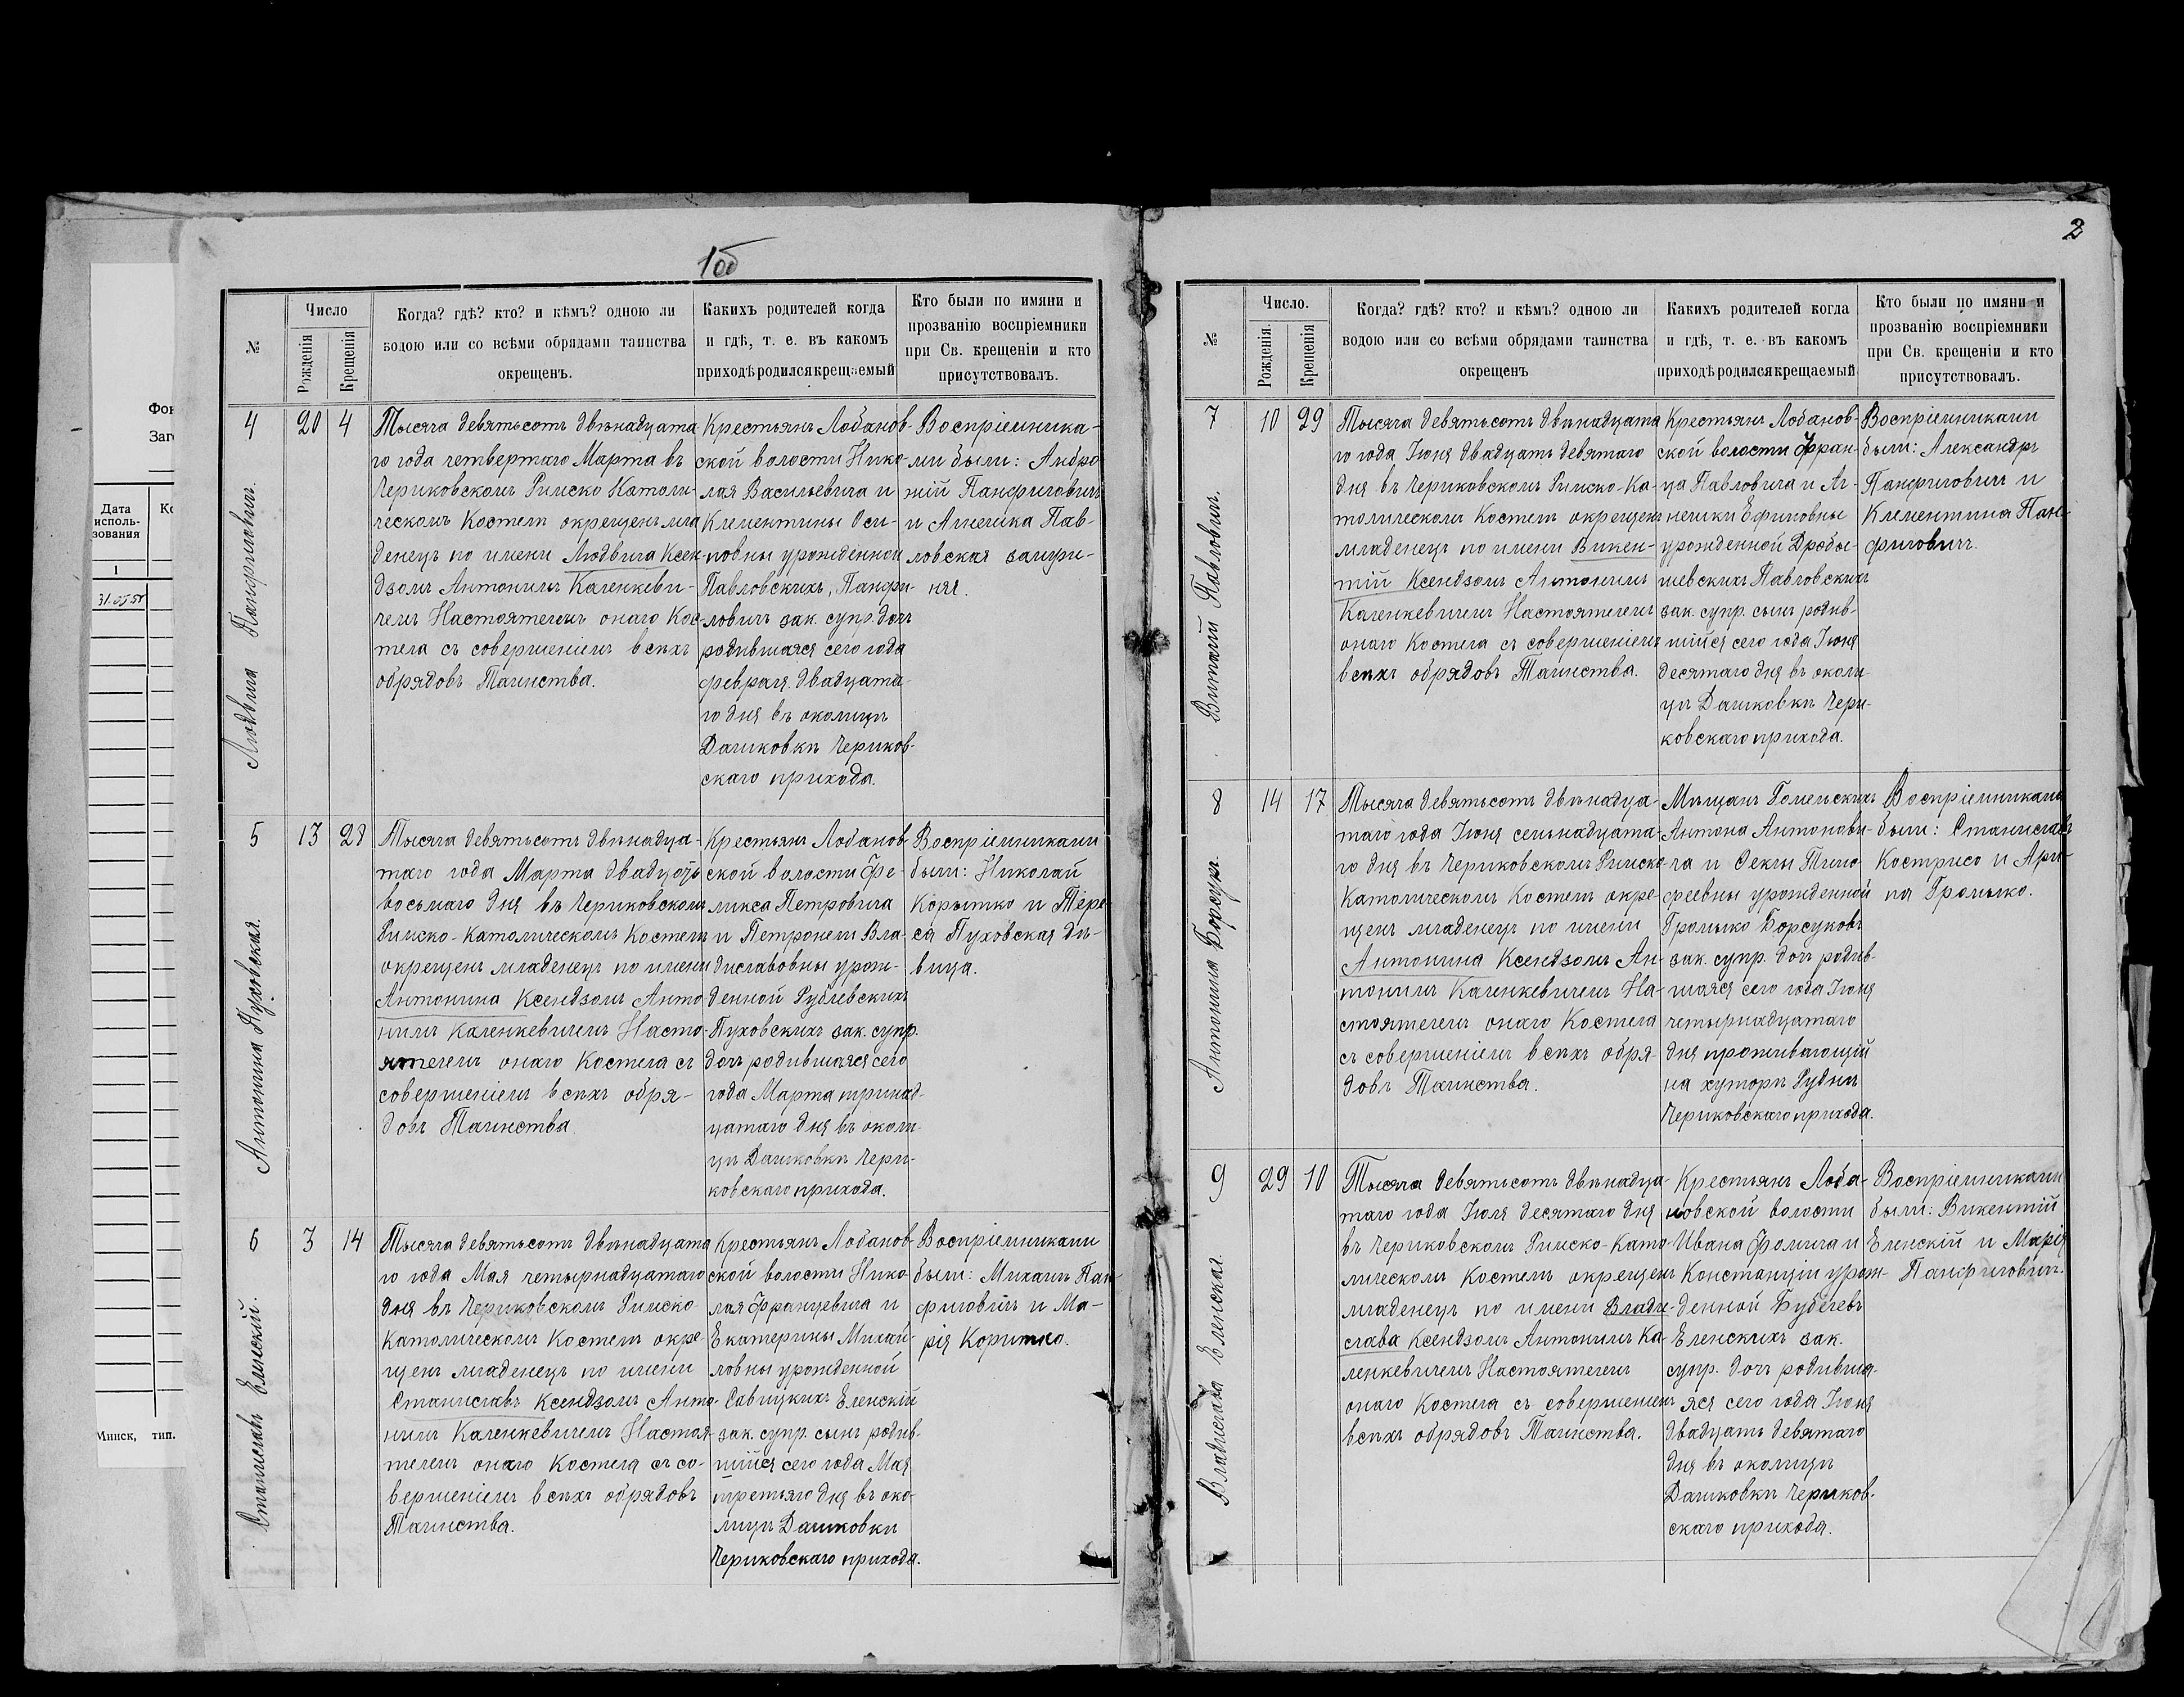 1об
2
Фон
Заг
Дата
исполь-
зования
1
31.05.51
Минск, тип.
№
Число
Рожденія
Крещенія
Когда? гдѣ? кто? и кѣмъ? одною ли
водою или со всѣми обрядами таинства
окрещенъ.
Какихъ родителей когда
и гдѣ, т. е. въ какомъ
приходѣ родился крещаемый
Кто были по имяни и
прозванію воспріемники
при Св. крещеніи и кто
присутствовалъ.
Людвига Панфиловичъ.
4
20
4
Тысяча девятьсотъ двѣнадцата
го года четвертаго Марта въ
Чериковскомъ Римско Католи
ческомъ Костелѣ окрещенъ мла
денецъ по имени Людвига Ксен
дзомъ Антониемъ Каленкеви-
чемъ Настоятелемъ онаго Кос-
тела съ совершеніемъ всѣхъ
обрядовъ Таинства.
Крестьянъ Лобанов-
ской волости Нико-
лая Васильевича и
Клементины Оси-
повны урожденной
Павловскихъ, Панфи-
ловичъ зак. супр. дочь
родившаяся сего года
февраля двадцата-
го дня въ околицѣ
Дашковкѣ Чериков-
скаго прихода.
Воспріемника-
ми были: Амбро
жій Панфиловичъ
и Агнешка Пав-
ловская замуж-
няя.
Антонина Пуховская.
5
13
28
Тысяча девятьсотъ двѣнадца-
таго года Марта двадцать
восьмаго дня въ Чериковскомъ
Римско-Католическомъ Костелѣ
окрещенъ младенецъ по имени
Антонина Ксендзомъ Анто
ниемъ Каленкевичемъ Насто-
ятелемъ онаго Костела съ
совершеніемъ всѣхъ обря-
довъ Таинства
Крестьянъ Лобанов
ской волости Фе-
ликса Петровича
и Петронели Вла-
диславовны урож-
денной Рублевскихъ
Пуховскихъ зак. супр.
дочь родившаяся сего
года Марта тринад-
цатаго дня въ околи
цѣ Дашковкѣ Чери-
ковскаго прихода.
Воспріемниками
были: Николай
Корытко и Тере
са Пуховская дѣ-
вица.
Станиславъ Еленскій.
6
3
14
Тысяча девятьсотъ двѣнадцата
го года Мая четырнадцатаго
дня въ Чериковскомъ Римско
Католическомъ Костелѣ окре-
щенъ младенецъ по имени
Станиславъ Ксендзомъ Анто-
ниемъ Каленкевичемъ Настоя
телемъ онаго Костела съ со-
вершеніемъ всѣхъ обрядовъ
Таинства.
Крестьянъ Лобанов-
ской волости Нико-
лая Францевича и
Екатерины Михай-
ловны урожденной
Савицкихъ Еленскій
зак. супр. сынъ родив-
шійся сего года Мая
третьяго дня въ око-
лицѣ Дашковкѣ
Чериковскаго прихода.
Воспріемниками
были: Михаилъ Пан-
филовичъ и Ма-
рія Коритко.
№
Число.
Рожденія.
Крещенія
Когда? гдѣ? кто? и кѣмъ? одною ли
водою или со всѣми обрядами таинства
окрещенъ
Какихъ родителей когда
и гдѣ, т. е. въ какомъ
приходѣ родился крещаемый
Кто были по имяни и
прозванію воспріемники
при Св. крещеніи и кто
присутствовалъ.
Павловичъ.
7
10
29
Тысяча девятьсотъ двѣнадцата
го года Іюня двадцать девятаго
дня въ Чериковскомъ Римско-Ка-
толическомъ Костелѣ окрещенъ
младенецъ по имени Викен-
тій Ксендзомъ Антониемъ
Каленкевичемъ Настоятелемъ
онаго Костела съ совершеніемъ
всѣхъ обрядовъ Таинства.
Крестьянъ Лобанов-
ской волости Фран-
ца Павловича и Аг-
нешки Ефимовны
урожденной Дробы-
шевскихъ Павловскихъ
зак. супр. сынъ родив-
шійся сего года Іюня
десятаго дня въ околи
цѣ Дашковкѣ Чери-
ковскаго прихода.
Воспріемниками
были: Александръ
Панфиловичъ и
Клементина Пан-
филовичъ.
Антонина Борсукъ.
8
14
17
Тысяча девятьсотъ двѣнадца-
таго года Іюня семьнадцата-
го дня въ Чериковскомъ Римско-
Католическомъ Костелѣ окре-
щенъ младенецъ по имени
Антонина Ксендзомъ Ан-
тониемъ Каленкевичемъ На-
стоятелемъ онаго Костела
съ совершеніемъ всѣхъ обря-
довъ Таинства.
Мѣщанъ Гомельскихъ
Антона Антонови-
ча и Феклы Тимо
феевны урожденной
Громыко Борсуковъ
зак. супр. дочь родив-
шаяся сего года Іюня
четырнадцатаго
дня проживающій
на хуторѣ Руднѣ
Чериковскаго прихода.
Воспріемниками
были: Станиславъ
Кострисо и Ари-
на Громыко.
Владислава Еленская.
9
29
10
Тысяча девятьсотъ двѣнадца-
таго года Іюля десятаго дня
въ Чериковскомъ Римско-Като-
лическомъ Костелѣ окрещенъ
младенецъ по имени Влади-
слава Ксендзомъ Антониемъ Ка-
ленкевичемъ Настоятелемъ
онаго Костела съ совершеніемъ
всѣхъ обрядовъ Таинства.
Крестьянъ Лоба-
новской волости
Ивана Фомича и
Констанціи урож-
денной Буделевъ
Еленскихъ зак.
супр. дочь родивша-
яся сего года Іюня
двадцать девятаго
дня въ околицѣ
Дашковкѣ Чериков-
скаго прихода.
Воспріемниками
были: Викентій
Еленскій и Марія
Панфиловичъ.